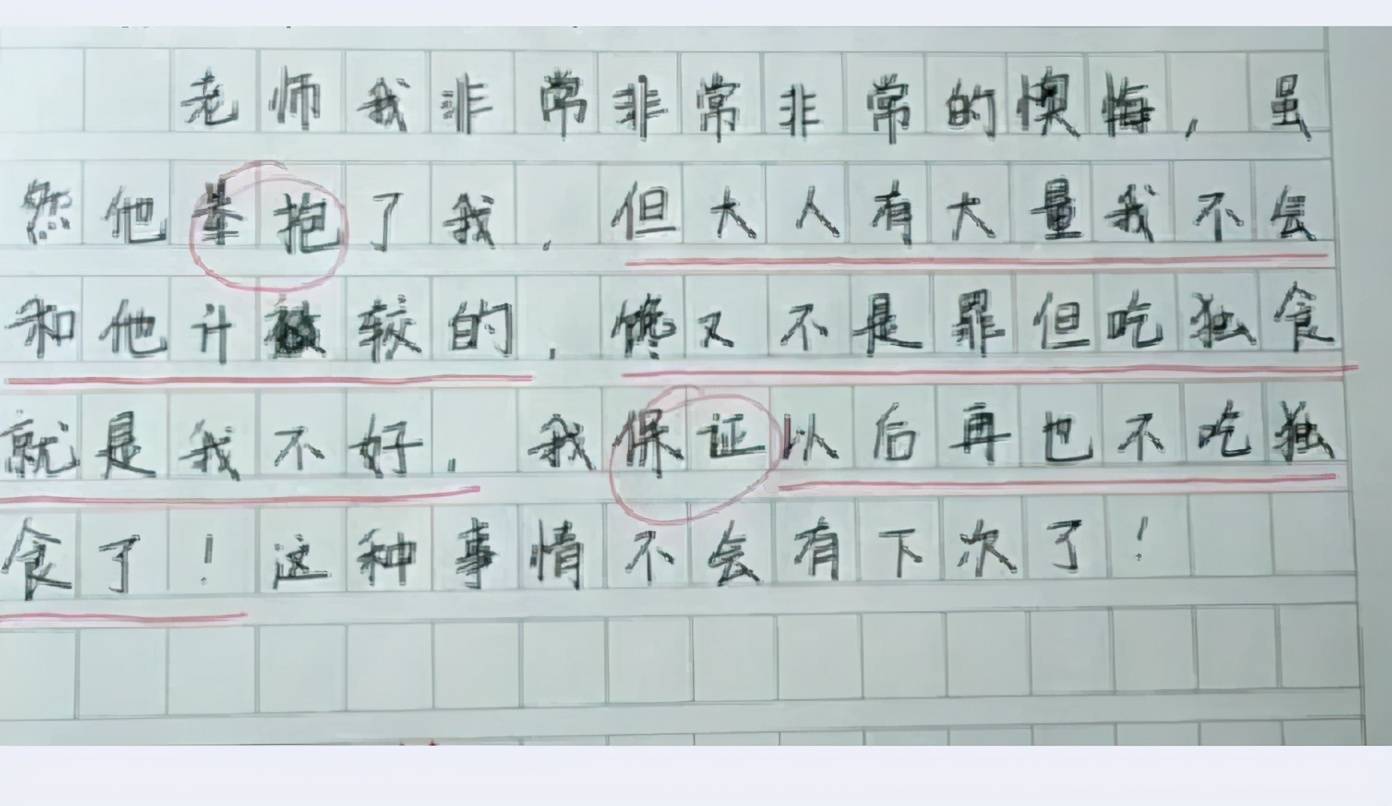 老师我非常非常非常的懊悔,虽
然他举抱了我,但大人有大量我不会
和他计较的,馋又不是罪但吃独食
就是我不好,我保证以后再也不吃独
食了!这种事情不会有下次了!